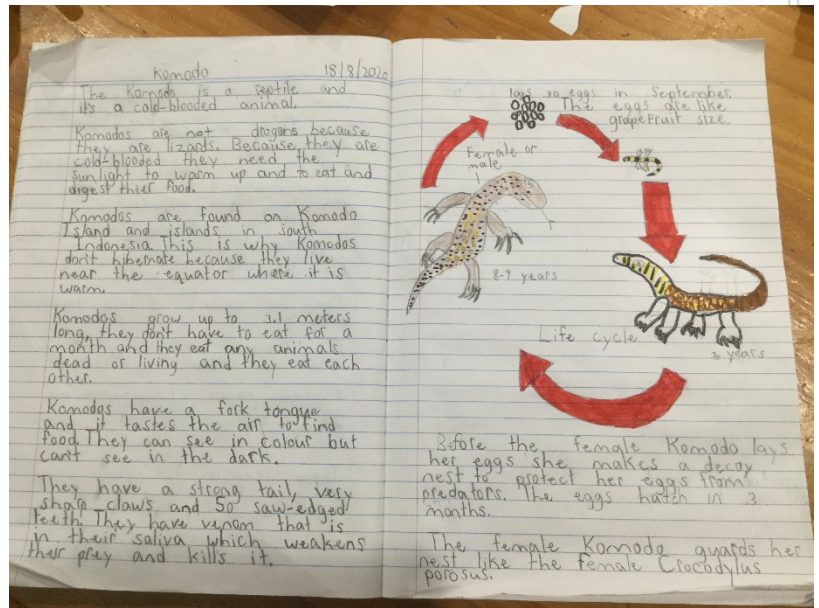 Komodo 18/8/2020
The Komodo is a reptile and
it's a cold-blooded animal.
Komodos are not dragons because
they are lizards. Because they are
cold-blooded they need the
sunlight to warm up and to eat and
digest thier food.
Komodos are found on Komodo
Island and islands in south
Indonesia. This is why Komodos
don't hibernate because they live
near the equator where it is
warm.
Komodos grow up to 3.1 meters
long, they don't have to eat for a
month and they eat any animals
dead or living and they eat each
other.
Komodos have a fork tongue
and it tastes the air to find
food. They can see in colour but
can't see in the dark.
They have a strong tail, very
sharp claws and 50 saw-edged
teeth. They have venom that is
in their saliva which weakens
their prey and kills it.
lays 30 eggs in September
The eggs are like
grapefruit size.
Female or
male
8-9 years
Life cycle
years
Before the female Komodo lays
her eggs she makes a decoy
nest to protect her eggs from
predators. The eggs hatch in 3
months.
The female Komodo guards her
nest like the female Crocodylus
porosus.